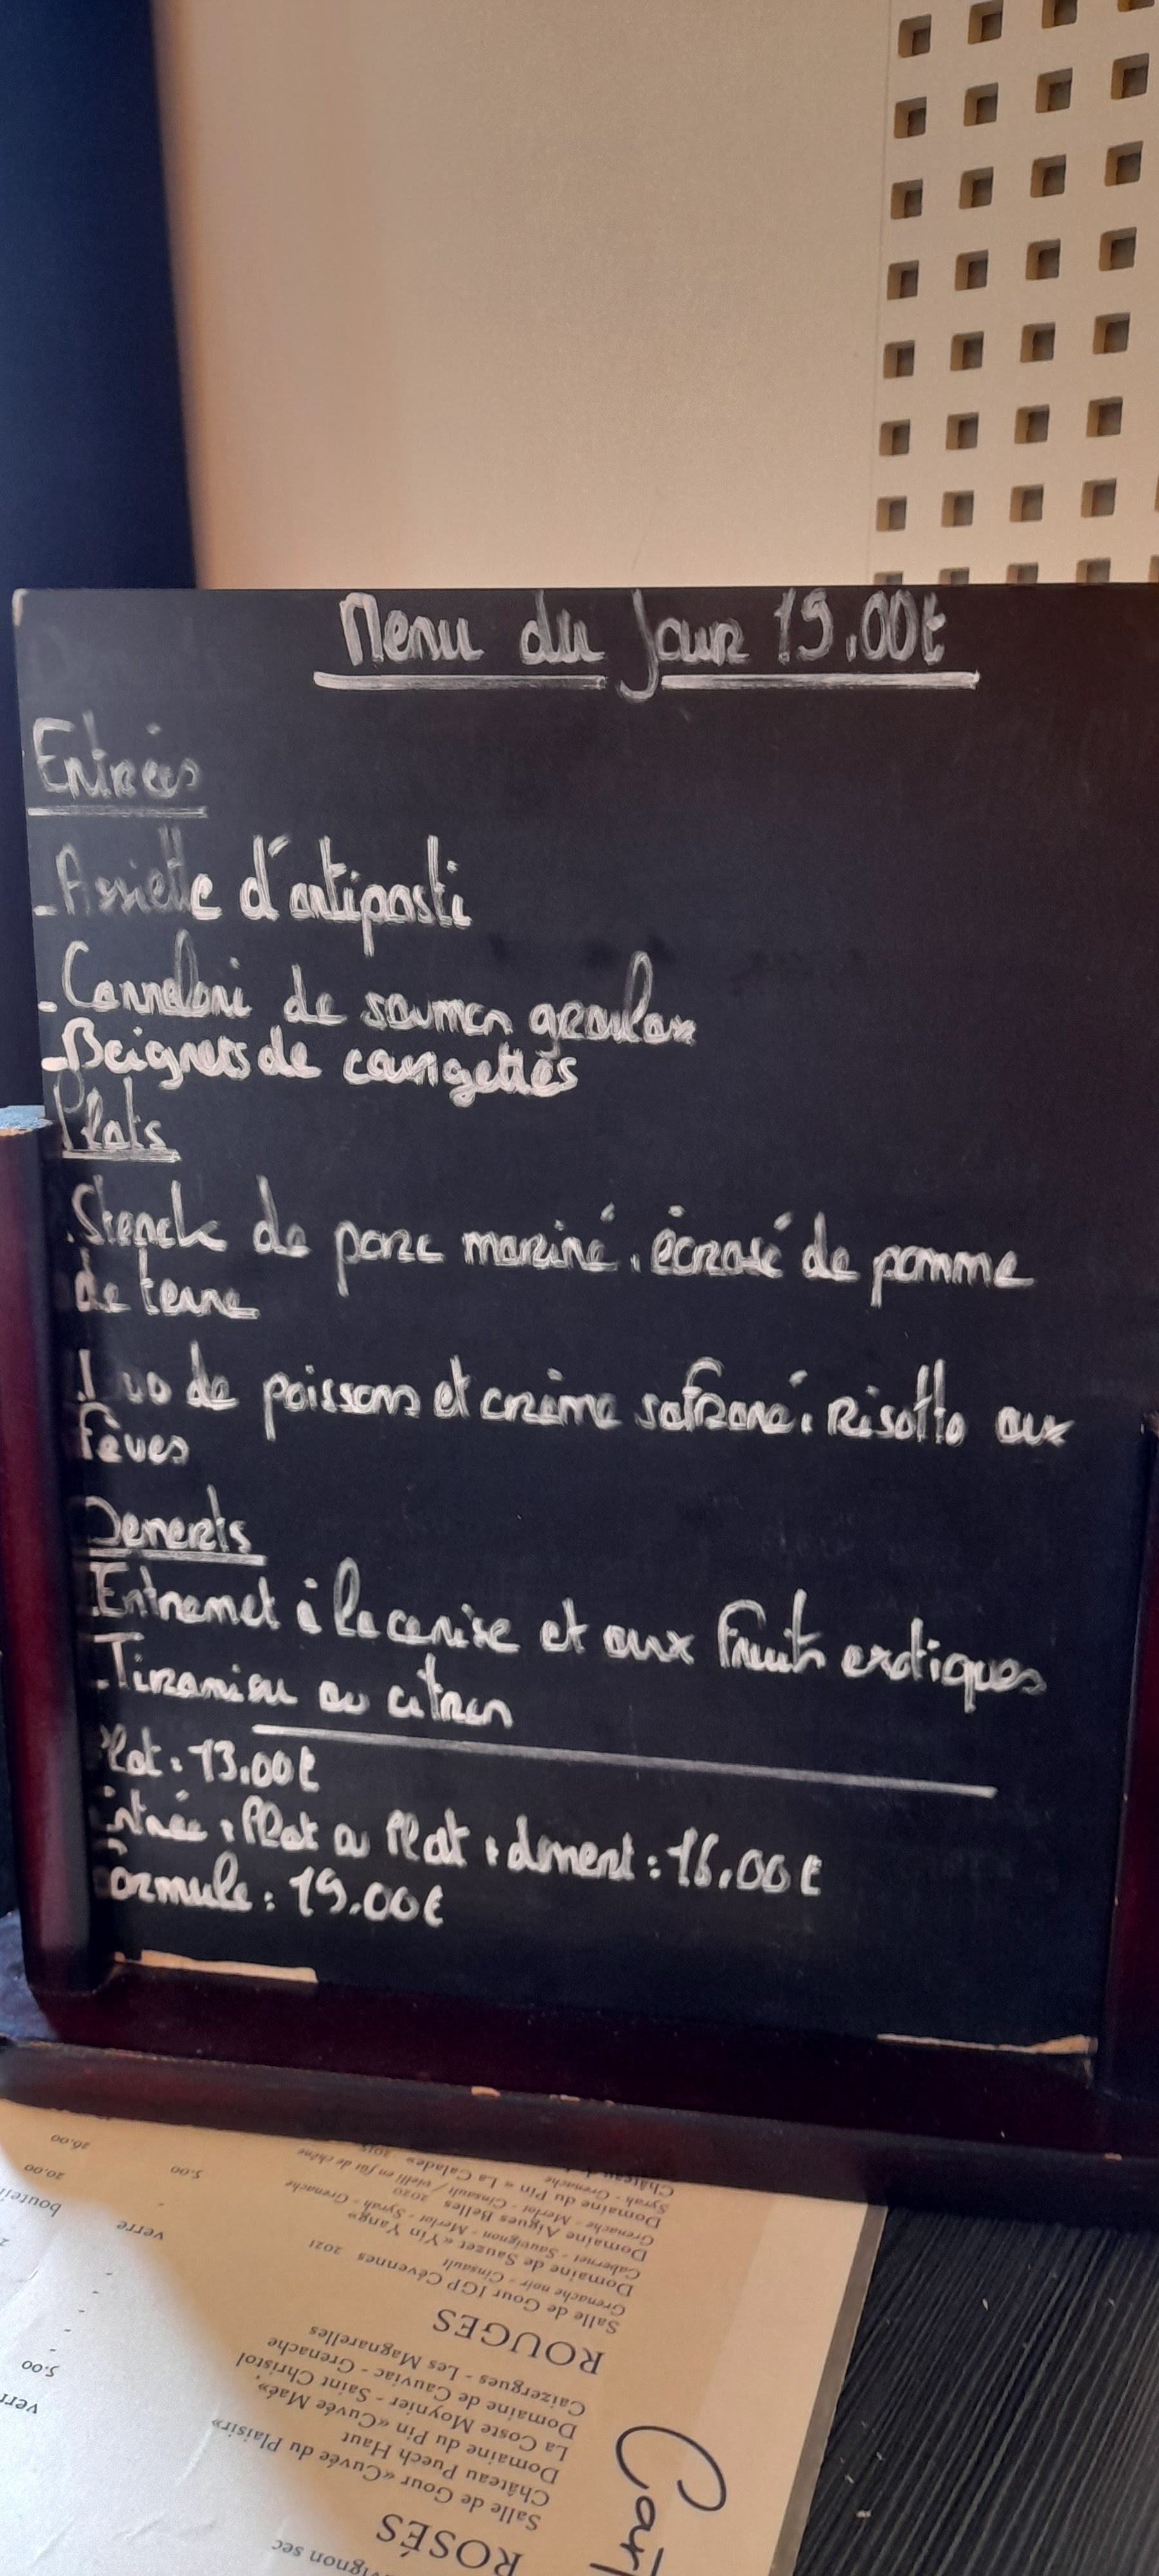 Menu du Jour 19.00€
Entrées
- Assiette d'antipasti
- Canneloni de saumon gravlax
- Beignets de courgettes
Plats
. Shank de porc mariné, écrasé de pomme
de terre
. Duo de poissons et crème safrané, Risotto aux
Fèves
Desserts
. Entremet à la cerise et aux Fruits exotiques
- Tiramisu au citron
Plat : 13.00€
Entrée + Plat ou Plat + dessert : 16.00€
Formule : 19.00€
Cart
vignon sec
ROSÉS
Salle de Gour «Cuvée du Plaisir»
Château Puech Haut
Domaine du Pin «Cuvée Maé»,
La Coste Moynier - Saint Christol
Domaine de Cauviac - Grenache
Caizergues - Les Magnarelles
verr
5.00
ROUGES
Salle de Gour IGP Cévennes 2021
Grenache noir - Cinsault
Domaine de Sauzet «Yin Yang»
Cabernet - Sauvignon - Merlot - Syrah - Grenache
Domaine Aigues Belles 2020
Grenache - Merlot - Cinsault / vieilli en fût de chêne
Domaine du Pin « La Calade» 2015
Syrah - Grenache
Château
verre
bouteil
5.00
20.00
26.00